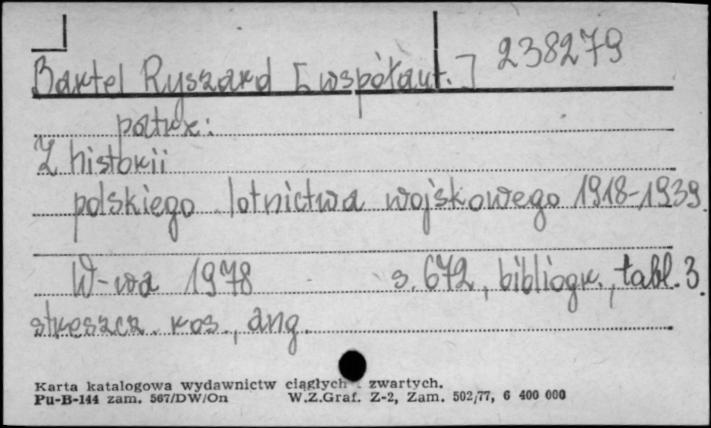 Bartel Ryszard [współaut.] 238279
patrz:
Z historii
polskiego lotnictwa wojskowego 1918-1939.
W-wa 1978 s. 672, bibliogr., tabl. 3.
streszcz. ros., ang.
Karta katalogowa wydawnictw ciągłych i zwartych.
Pu-B-144 zam. 567/DW/On W.Z.Graf. Z-2, Zam. 502/77, 6 400 000